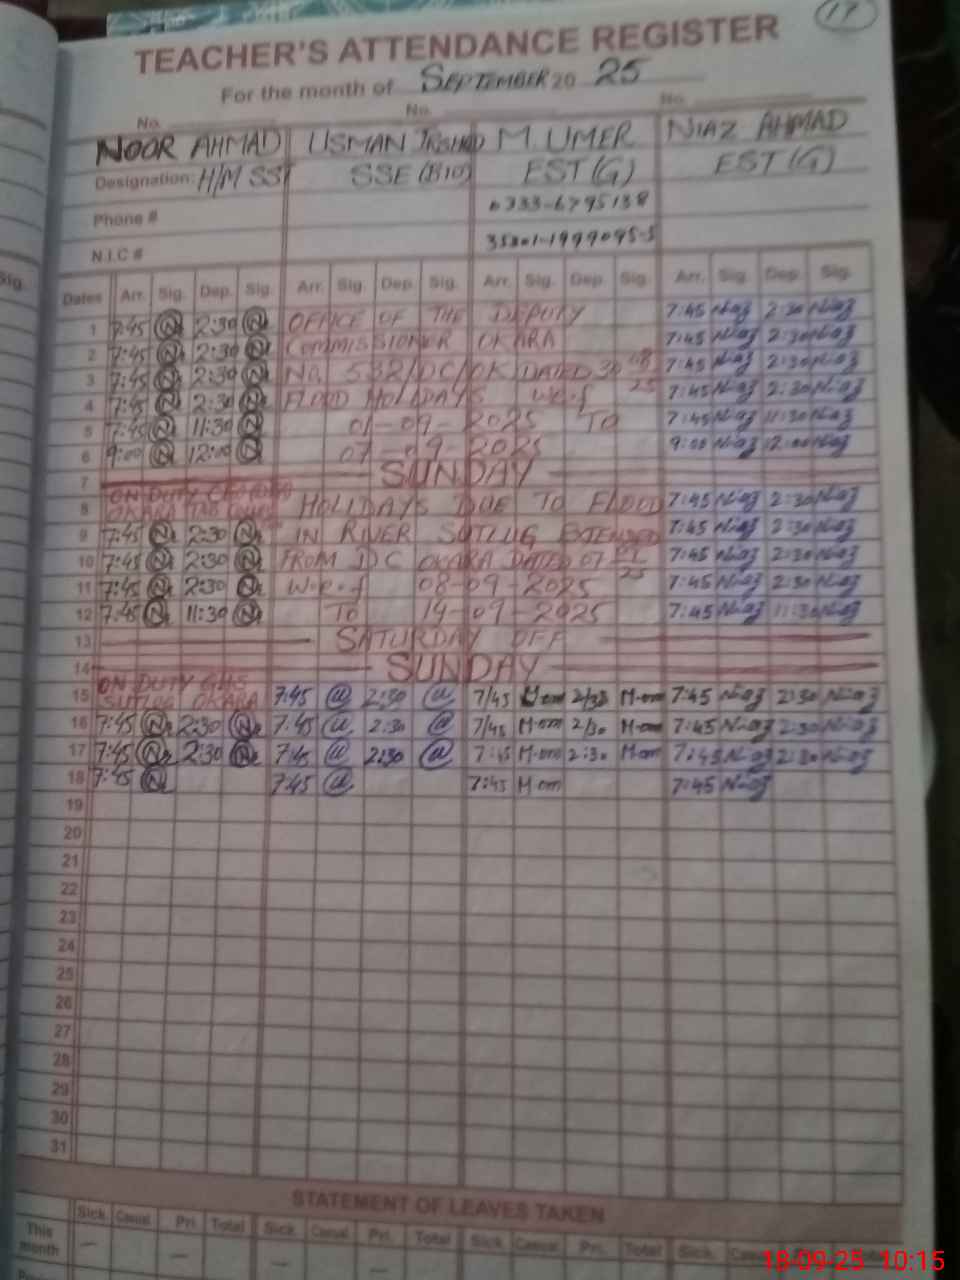 17
TEACHER'S ATTENDANCE REGISTER
For the month of SEPTEMBER 20 25
No. No. No.
NOOR AHMAD USMAN IRSHAD M UMER NIAZ AHMAD
Designation: H/M SST SSE (BIO) EST (G) EST (G)
Phone # 0333-6795138
N.I.C # 35301-1999095-5
Dates Arr. Sig. Dep. Sig. Arr. Sig. Dep. Sig. Arr. Sig. Dep. Sig. Arr. Sig. Dep. Sig.
1 7:45 2:30 OFFICE OF THE DEPUTY 7:45 Niaz 2:30 Niaz
2 7:45 2:30 COMMISSIONER OKARA 7:45 Niaz 2:30 Niaz
3 7:45 2:30 NO. 532/DC/OK DATED 30 08 25 7:45 Niaz 2:30 Niaz
4 7:45 2:30 FLOOD HOLIDAYS w.e.f 7:45 Niaz 2:30 Niaz
5 7:45 11:30 01-09-2025 TO 7:45 Niaz 11:30 Niaz
6 9:00 12:00 07-09-2025 9:00 Niaz 12:00 Niaz
7 SUNDAY
8 ON DUTY OKARA HOLIDAYS DUE TO FLOOD 7:45 Niaz 2:30 Niaz
9 7:45 2:30 IN RIVER SUTLUG EXTENDED 7:45 Niaz 2:30 Niaz
10 7:45 2:30 FROM DC OKARA DATED 07 09 25 7:45 Niaz 2:30 Niaz
11 7:45 2:30 w.e.f 08-09-2025 7:45 Niaz 2:30 Niaz
12 7:45 11:30 TO 14-09-2025 7:45 Niaz 11:30 Niaz
13 SATURDAY OFF
14 SUNDAY
15 ON DUTY GHS SUTLUG OKARA 7:45 2:30 7/45 M.om 2/30 M.om 7:45 Niaz 2:30 Niaz
16 7:45 2:30 7:45 2:30 7/45 M.om 2/30 M.om 7:45 Niaz 2:30 Niaz
17 7:45 2:30 7:45 2:30 7:45 M.om 2:30 M.om 7:45 Niaz 2:30 Niaz
18 7:45 7:45 7:45 M.om 7:45 Niaz
19
20
21
22
23
24
25
26
27
28
29
30
31
STATEMENT OF LEAVES TAKEN
Sick Casual Pri. Total Sick Casual Pri. Total Sick Casual Pri. Total Sick
This month
18-09-25 10:15